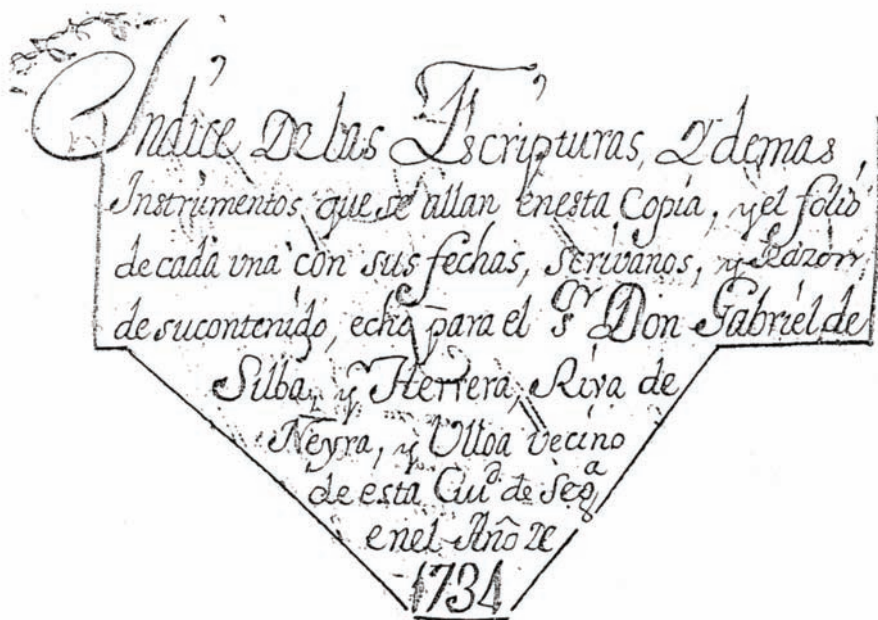 Indice De las Escripturas, Y demas,
Instrumentos, que se allan enesta Copia, y el folio
de cada vna con sus fechas, scrivanos, y Razon
de sucontenido, echo para el Sr Don Gabriel de
Silba, y Herrera, Riva de
Neyra, y Ulloa vecino
de esta Ciud de Stgoa
enel Año De
1734